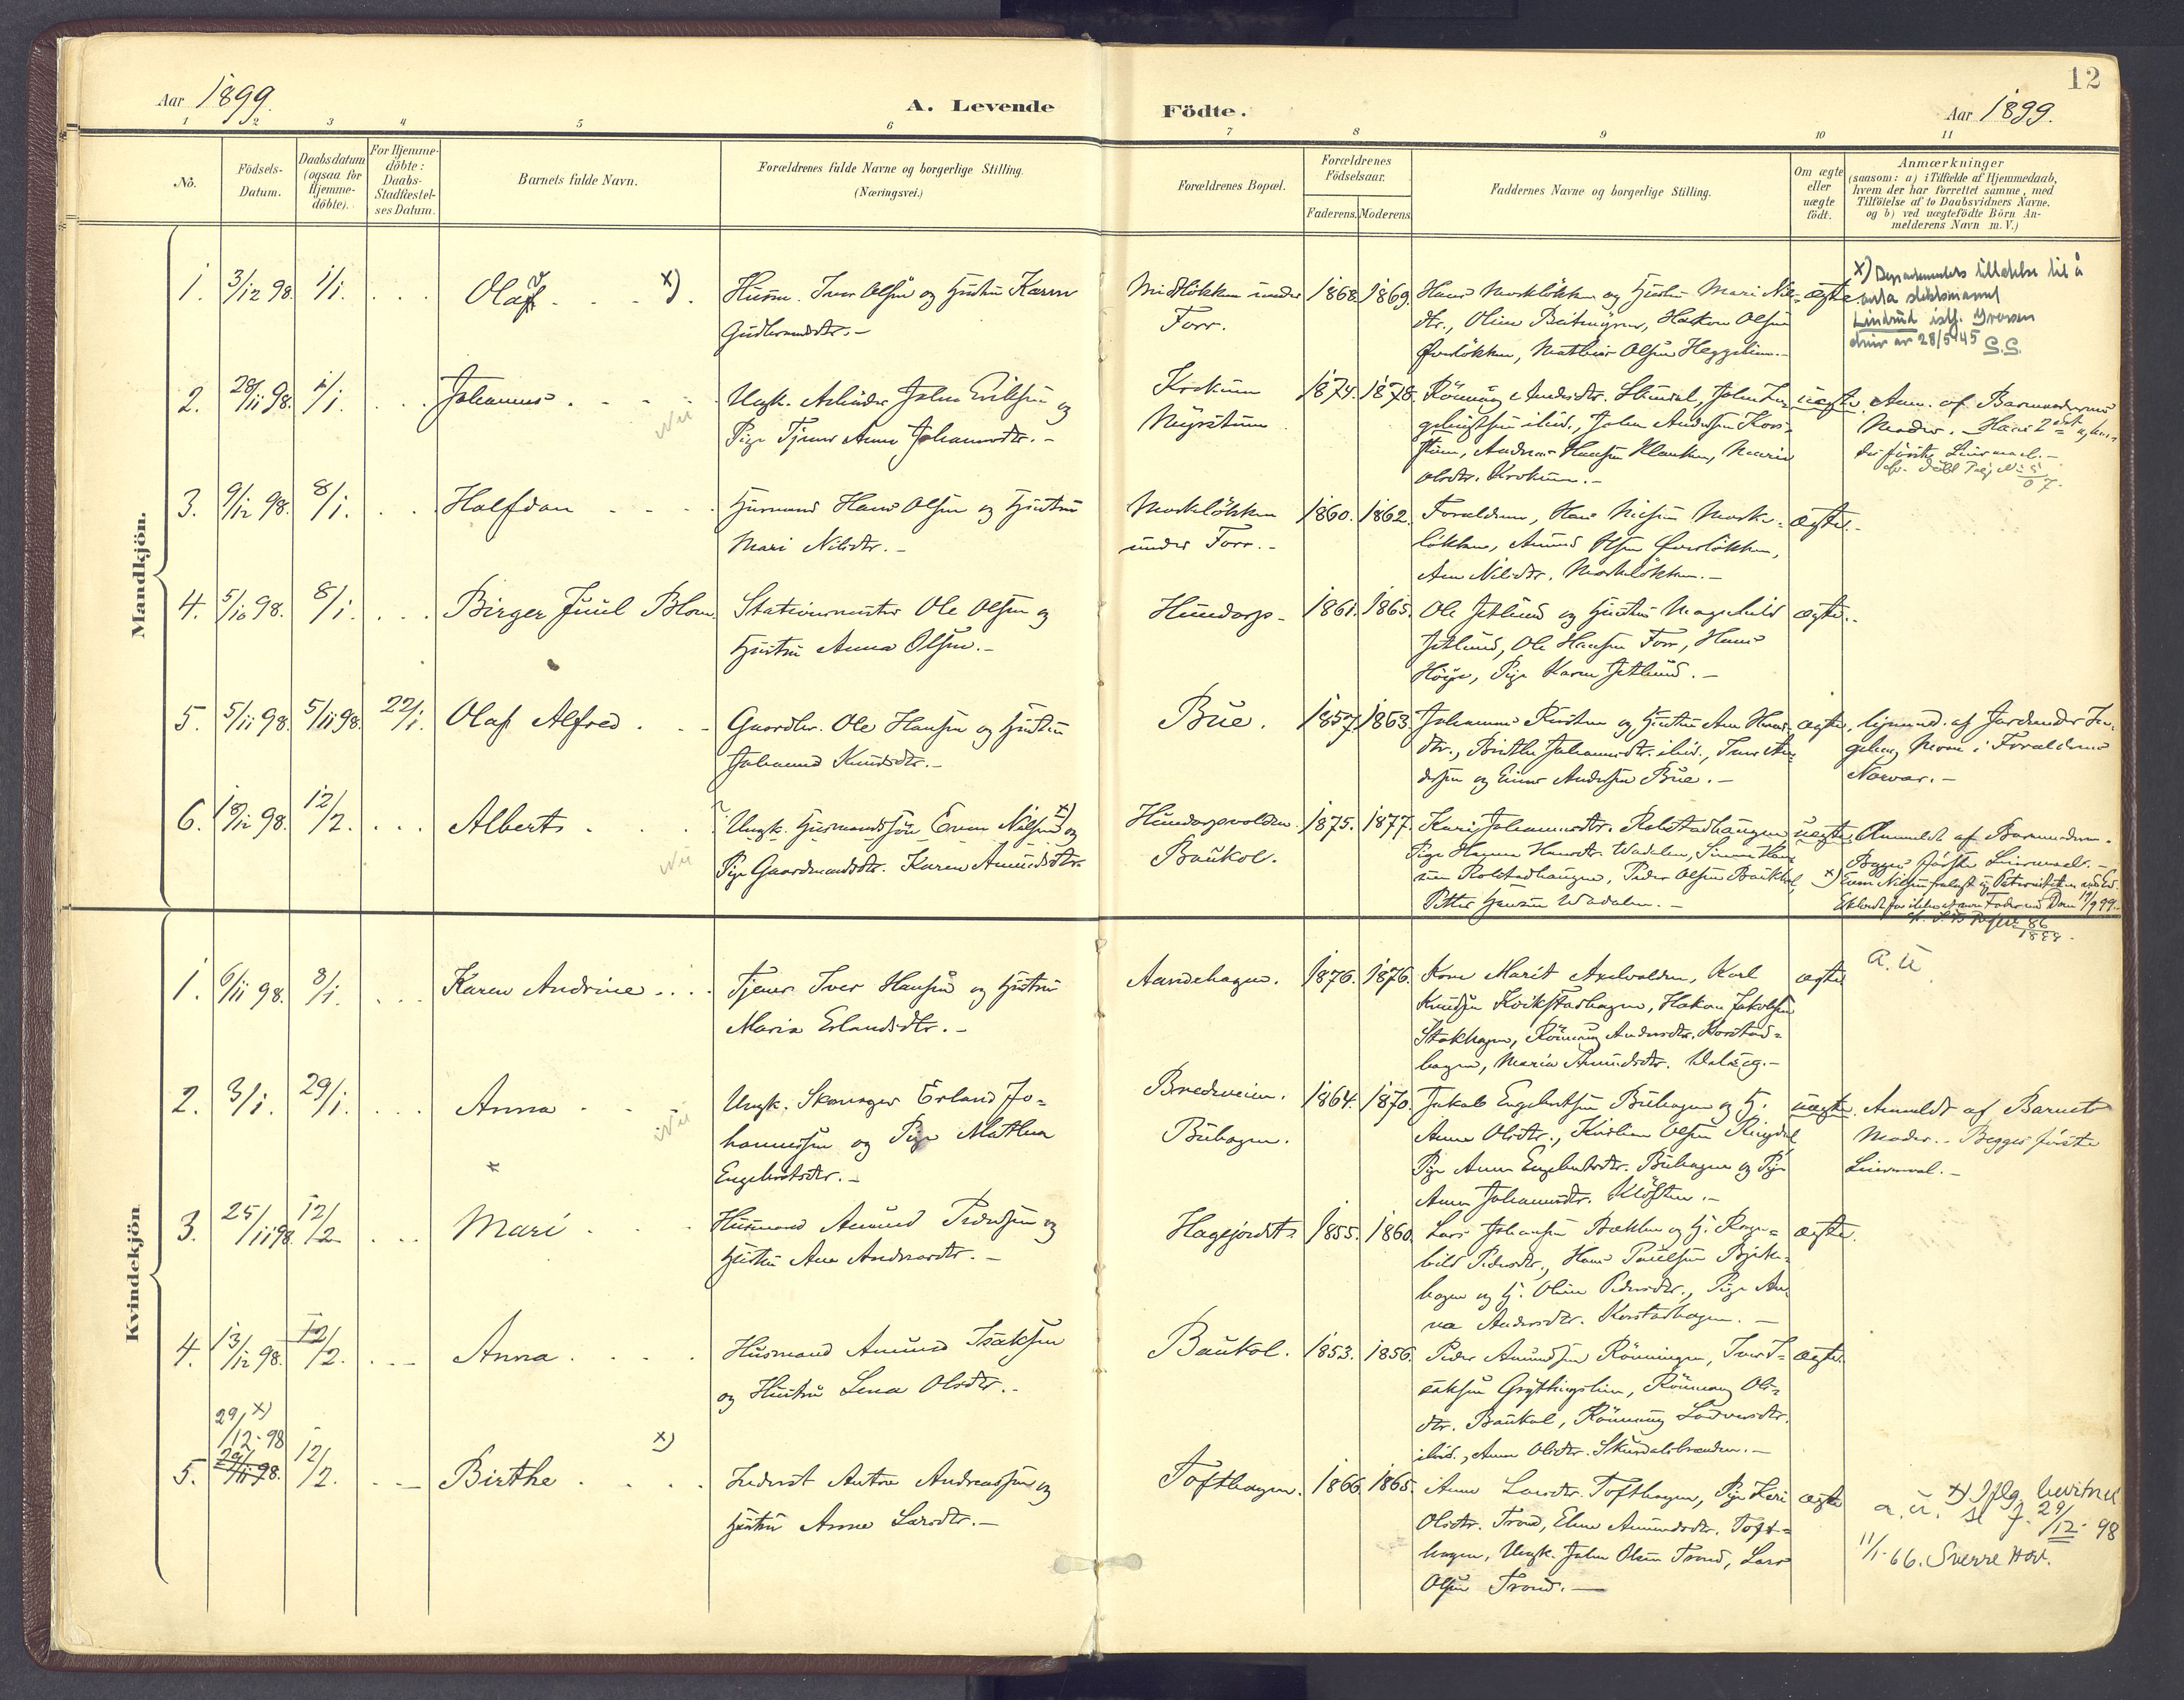 12
Aar 1899.
A. Levende Födte.
Aar 1899.
1 2 3 4 5 6 7 8 9 10 11
No.
Födsels-
Datum.
Daabsdatum
(ogsaa for
Hjemme-
döbte).
For Hjemme-
döbte:
Daabs-
Stadfæstel-
ses Datum.
Barnets fulde Navn.
Forældrenes fulde Navne og borgerlige Stilling.
(Næringsvei.)
Forældrenes Bopæl.
Forældrenes
Födselsaar.
Faderens. Moderens.
Faddernes Navne og borgerlige Stilling.
Om ægte
eller
uægte
födt.
Anmærkninger
(saasom: a) i Tilfælde af Hjemmedaab,
hvem der har forrettet samme, med
Tilföielse af to Daabsvidners Navne,
og b) ved uægtefödte Börn An-
melderens Navn m. V.)
Mandkjön.
1. 3/12 98. 1/1. . . . Olaf . . . x).
Husm. Iver Olsen og Hustru Karen
Gudbrandsdtr. -
Midtlökken under
Forr.
1868. 1869.
Hans Morklökken og Hustru Mari Nils-
dtr., Oline , Haakon Olsen
Överlökken, Mathias Olsen Heggelien. -
ægte.
x) Departementets tillatelse til å
anta slektsnavnet
Lindrud istf. Iversen
28/5 45 S.S.
2. 28/11 98. 1/1. . . . Johannes . . . .
Ungk. Arbeider Johan Eriksen og
Pige Tjener Anne Johannesdtr. -
Krokum
1874. 1878.
Rönnaug Andersdtr. , Johan En-
gebrigtsen ibid., Johan Andersen Kors-
, Andreas Hansen Klanken, Maria
Olsdtr. Krokum. -
uægte.
Anm. af Barnemoderens
Moder. - Hans 2det og hen-
des förste Leiermaal. -
3. 9/12 98. 8/1. . . . Halfdan . . . .
Husmand Hans Olsen og Hustru
Mari Nilsdtr. -
Morklökken
under Forr. -
1860. 1862.
Forældrene, Hans Nilsen Mork-
lökken, Amund Olsen Överlökken,
Ane Nilsdtr. Morklökken. -
Ægte. -
4. 5/10 98. 8/1. . . . Birger Juul Blom.
Stationsmester Ole Olsen og
Hustru Anna Olsen. -
Hundorp -
1861. 1865.
Ole Jetlund og Hustru Magnhild
Jetlund, Ole Hansen Forr, Hans
, Pige Karen Jetlund. -
ægte. -
5. 5/11 98. 5/11 98. 22/1. Olaf Alfred . . .
Gaardbr. Ole Hansen og Hustru
Johanne Knudsdtr. -
Bue.
1857. 1863.
Johannes og Hustru Ane Hans-
dtr., Birthe Johannesdtr. ibid., Iver An-
dersen og Einar Andersen Bue. -
ægte.
hjemmed. af Jordemoder In-
geborg Moen i Forældrenes
Nærvær. -
6. 18/12 98. 12/2. . . . Albert . . . .
Ungk. Husmandssön Even Nilsen x) og
Pige Gaardmandsdtr. Karen Amundsdtr.
Hundorpvolden.
Baukol.
1875. 1877.
Kari Johannesdtr. Rolstadhaugen,
Pige Hanna Hansdtr. Wadalen, Simen Han-
sen Rolstadhaugen, Peder Olsen Baukol,
Petter Hansen Wadalen. -
uægte.
Anmeldt af Barnemoderen.
Begges förste Leiermaal. -
x) Even Nilsen fralagt sig Paterniteten ved Ed.
Erklæret for ikke at være Fader ved Dom 19/9 99. -
Kvindekjön
1. 6/11 98. 8/1. . . . Karen Andrine . . . .
Tjener Iver Hansen og Hustru
Maria Erlandsdtr. -
Aandehagen.
1876. 1876.
Kone Marit Axelvolden, Karl
Knudsen Kvikstadhagen, Haakon Jakobsen
Stokhagen, Rönnaug Andersdtr. Korstad-
hagen, Maria Amundsdtr. . -
ægte
a. u
2. 3/1. 29/1. . . . Anna . . .
Ungk. Skomager Erland Jo-
hannessen og Pige Mathea
Engebretsdtr. -
Bredeveien.
Buhagen.
1864. 1870.
Jakob Engebretsen Buhagen og H.
Anne Olsdtr., Kristian Olsen Ringdal,
Pige Anne Engebretsdtr. Buhagen og Pige
Anne Johannesdtr. Klöften. -
uægte.
Anmeldt af Barnets
Moder. - Begges förste
Leiermaal. -
3. 25/11 98. 12/2. . . . Mari . . .
Husmand Amund Pedersen og
Hustru Ane Andersdtr. -
Hagejordet
1855. 1860.
Lars Johansen Bækken og H. Ragn-
hild Pedersdtr., Hans Paulsen Bjerke-
hagen og H. Oline Pedersdtr., Pige An-
na Andersdtr. Korstadhagen. -
ægte.
4. 13/12 98. 12/2. . . . Anna . . . .
Husmand Amund Isaksen
og Hustru Lena Olsdtr. -
Baukol.
1853. 1856.
Peder Amundsen Rönningen, Iver I-
saksen Grytlingslien, Rönnaug Ols-
dtr. Baukol, Rönnaug
ibid., Anne Olsdtr. Skurdalsbrænden. -
ægte.
29/12 - 98 x)
5. 29/11 98. 12/2. . . . Birthe . . . . x)
Inderst Anton Andreassen og
Hustru Anne Larsdtr. -
Tofthagen.
1866. 1865.
Anne Larsdtr. Tofthagen, Pige Kari
Olsdtr. Trond, Eline Amundsdtr. Toft-
hagen, Ungk. Johan Olsen Trond, Lars
Olsen Trond. -
ægte
a. u. x) Iflg. bevitnelse
f. 29/12 - 98
11/1 - 66. Sverre